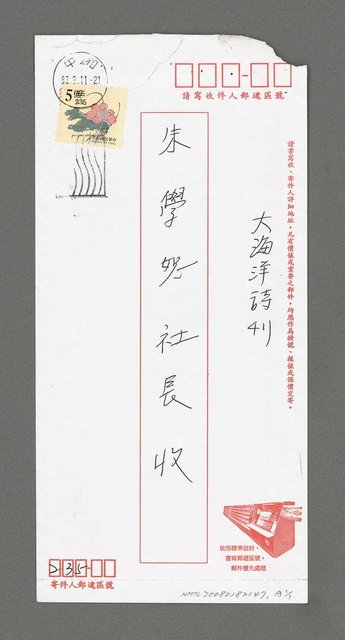 83.3.11-21
5
請寫收件人郵遞區號
請書寫收、寄件人詳細地址，凡有價值或重要之郵件，均應作為掛號、報值或保價交寄。
大海洋詩刊
朱學恕社長收
使用標準信封，
書寫郵遞區號，
郵件優先處理
235
寄件人郵遞區號
NMTL20080182147